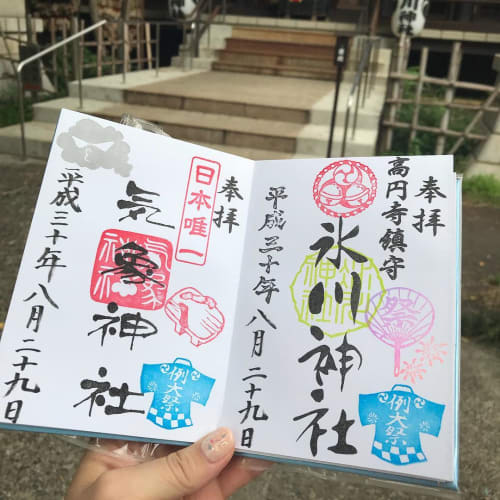 奉拝
高円寺鎮守
氷川神社
祭
例大祭
平成三十年八月二十九日
奉拝
日本唯一
気象神社
例大祭
平成三十年八月二十九日
川神